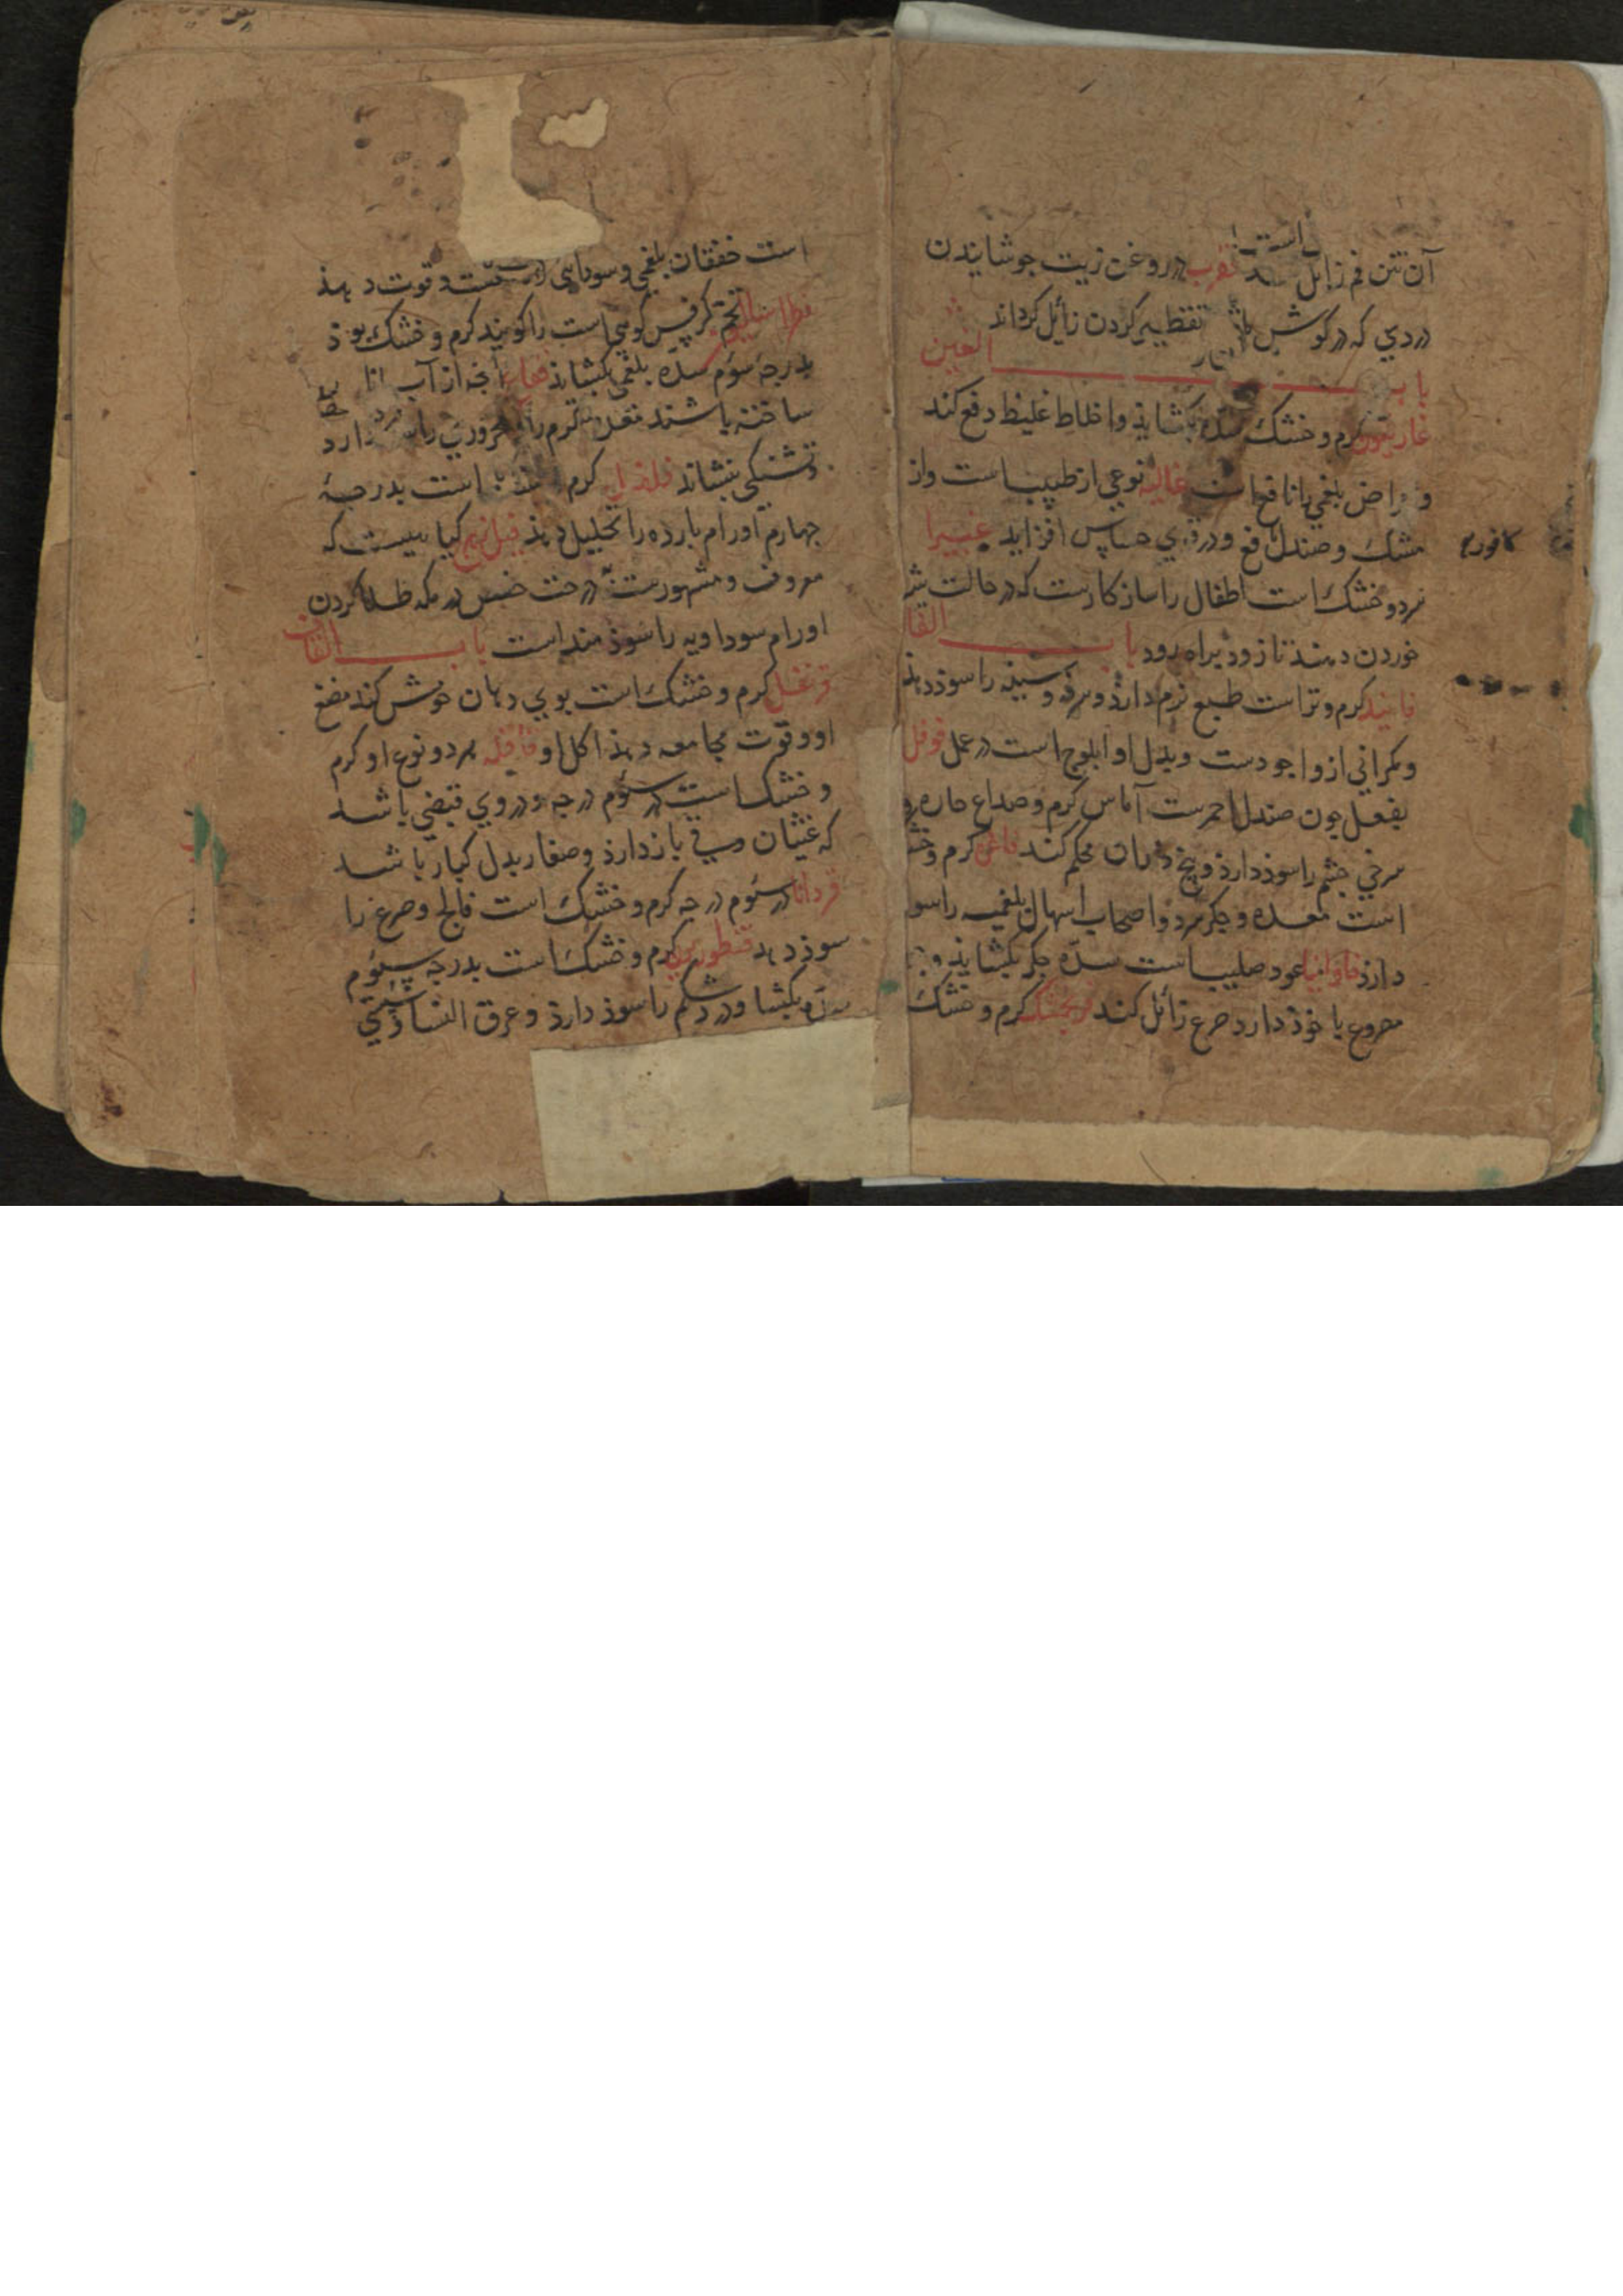 آن نتن فم زایل کند است عقرب در روغن زیت جوشانیدن
دردي که در کوش باشد تقطیر کردن زائل کرداند
باب الغین
غاریقون کرم و خشک سده بکشاید و اخلاط غلیظ دفع کند
و امراض بلغمي را نافع است غالیه نوعي از طیب است و از
مشک و صندل نافع و در قوي حساس افزاید غبیرا
کافور
سرد و خشک است اطفال را سازکارست که در حالت شیر
خوردن دهند تا زود براه رود باب الفا
فانید کرم و تر است طبع نرم دارد و سرفه و سینه را سوذ دهد
و مکراني ازو اجودست و بدل او ابلوج است در عمل فوفل
بفعل چون صندل احمرست آماس کرم و صداع حاره و
سرخي چشم را سوذ دارذ و بیخ دندان محکم کند کرم و خشک
است معده و جکر سرد و اصحاب اسهال بلغمیه را سود
دارذ فاوانیا عود صلیب است سدّه جکر بکشاید و
مصروع با خوذ دارد صرع زائل کند فرنجمشک کرم و خشک
است خفقان بلغمي و سوداءي را و قوت دهذ
فطراسالیون تخم کرفس کوهي است را کویند کرم و خشک بوذ
بدرجۀ سوم سدّه بلغمي بکشاید فقاع آنجه از آب انار
ساخته باشند معده کرم را محروري را دارد
و تشنکي بنشاند کرم است بدرجۀ
چهارم اورام بارده را تحلیل دهذ فیلزهرج کیاهیست که
معروف و مشهورست درخت حضض در مکه طلا کردن
اورام سوداویه را سوذمند است باب القاف
قرنفل کرم و خشک است بوي دهان خوش کند مضغ
او و قوت مجامعه دهذ اکل او قاقله هر دو نوع او کرم
و خشک است در سوم درجه و در وي قبضي باشد
که غثیان و قي باز دارذ و صغار بدل کبار باشد
قردانا در سوم درجه کرم و خشک است فالج و صرع را
سوذ دهد قنطوریون کرم و خشک است بدرجه سوم
سدّه بکشا و درد شکم را سوذ دارذ و عرق النسا و